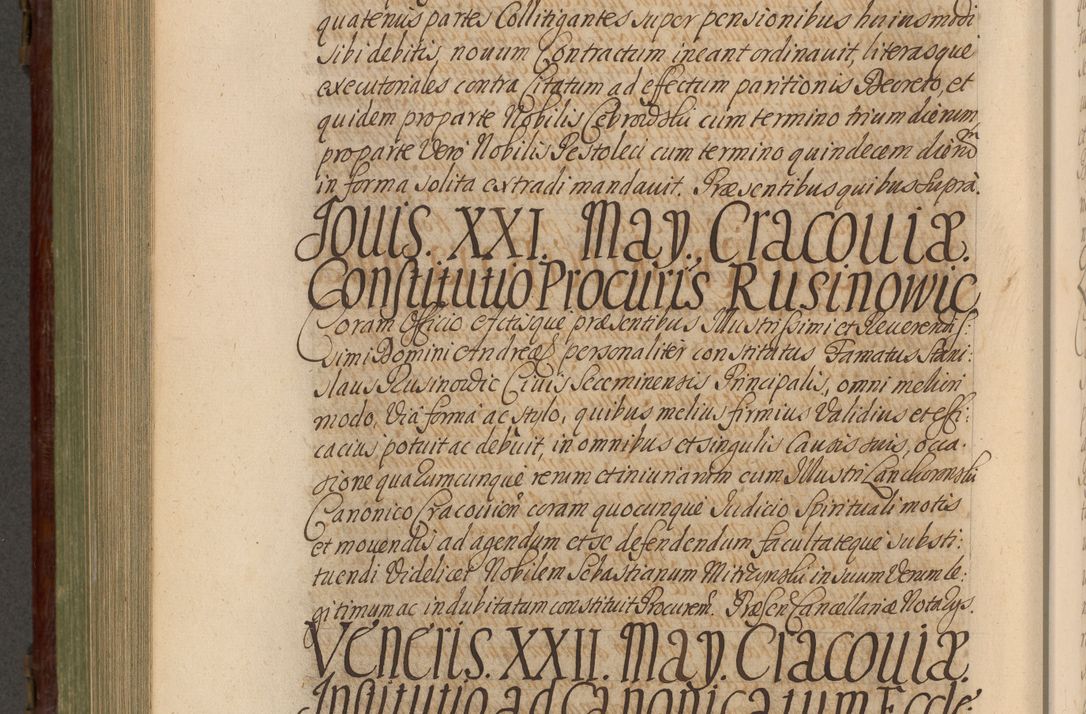 quatenus partes Collitigantes super pensionibus huiusmodi
sibi debitis, nouum Contractum ineant ordinauit, literasque
executoriales contra Citatum ad effectum paritionis Decreto, et
quidem pro parte Nobilis Cebrowski cum termino trium dierum,
pro parte Vero Nobilis Pestoleci cum termino quindecem dierū
in forma solita extradi mandauit. Præsentibus quibus supra.
Jouis. XXI. May. Cracouiæ.
Constitutio Procuris Rusinowic
Coram Officio Actisque præsentibus Illustrissimi et Reverendis:
simi Domini Andreæ personaliter constitutus Famatus Stani:
slaus Rusinowic Civis Seceminensis Principalis, omni meliori
modo, Via forma ac stylo, quibus melius firmius Validius et effi:
cacius potuit ac debuit, in omnibus et singulis Causis suis, occa:
sione quarumcunque rerum et iniuriarum cum Illustri Lanckoronski
Canonico Cracouien coram quocunque Iudicio Spirituali motis
et mouendis ad agendum et se defendendum facultateque substi:
tuendi Videlicet Nobilem Sebastianum Mitrzynski in suum Verum le:
gitimum ac indubitatum constituit Procurem. Præsen Cancellariæ Notarys.
Veneris. XXII. May. Cracouiæ.
Institutio ad Canonicatum Eccle: